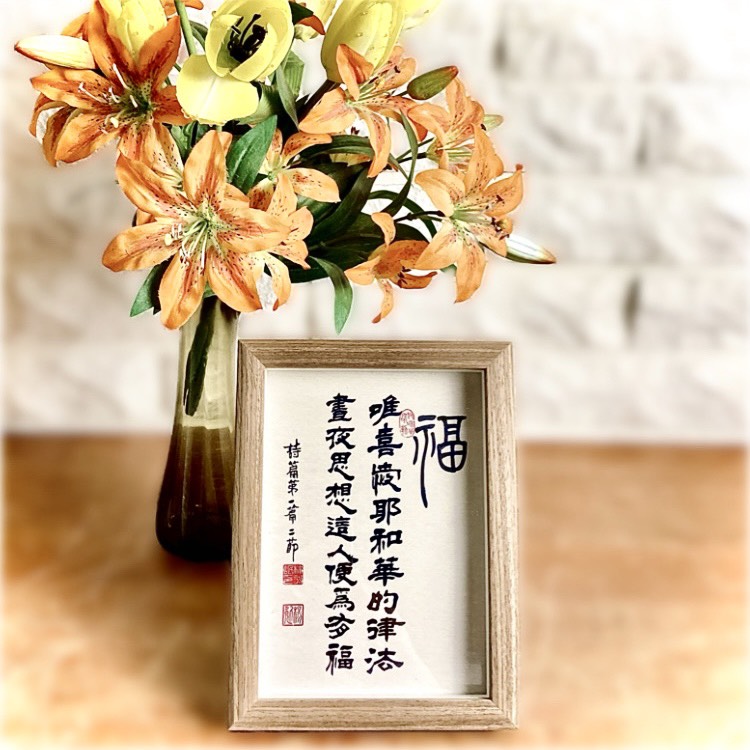 福
唯喜愛耶和華的律法
晝夜思想這人便為有福
詩篇第一篇二節